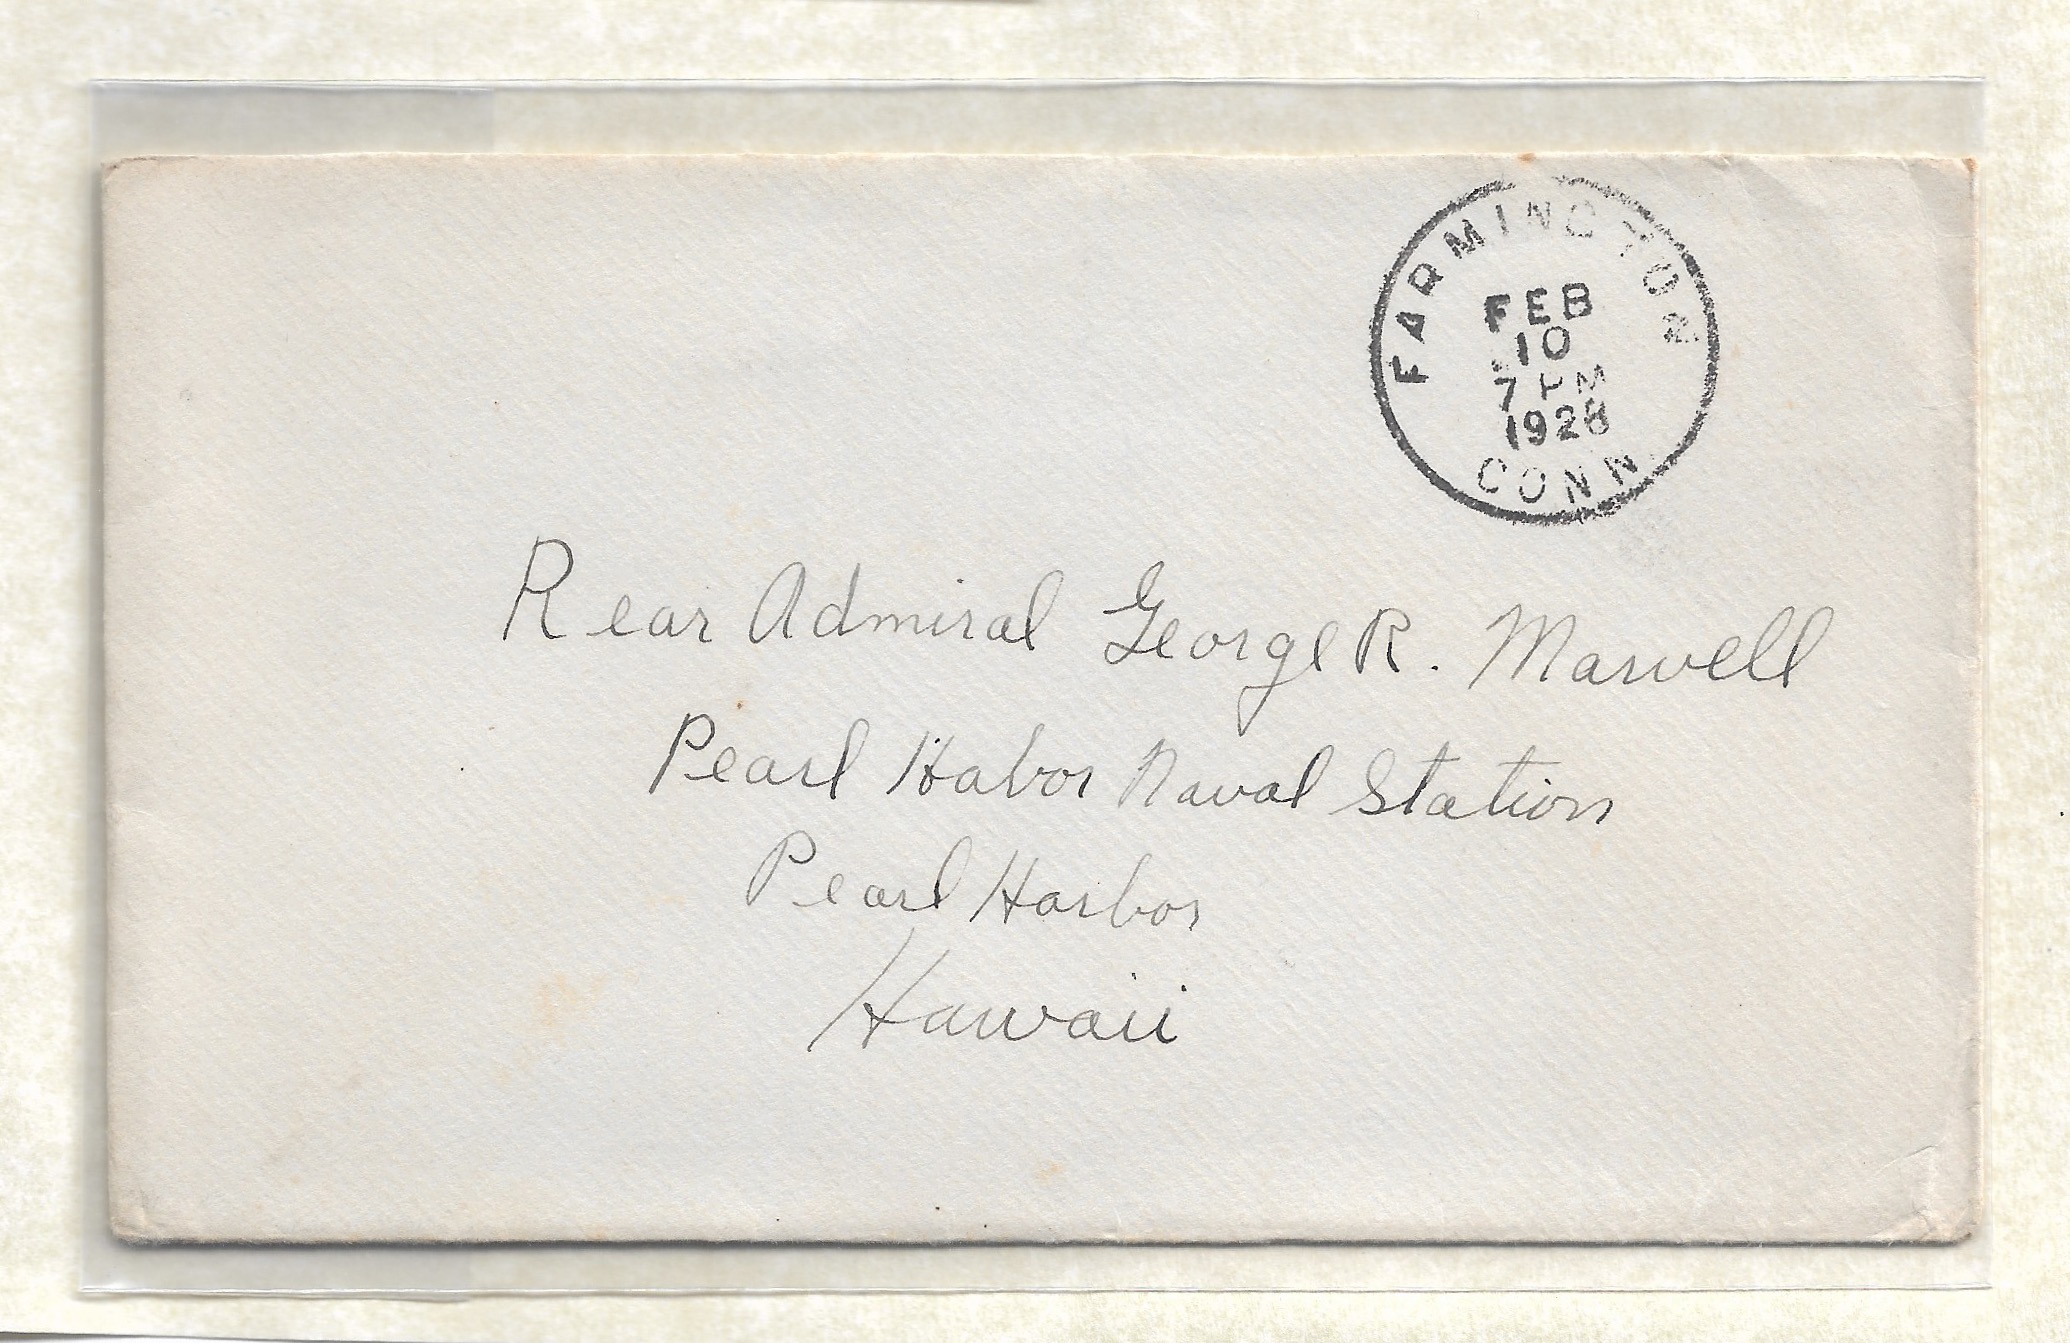 FARMINGTON
FEB
10
7 PM
1928
CONN
Rear Admiral George R. Marvell
Pearl Habor Naval Station
Pearl Harbor
Hawaii